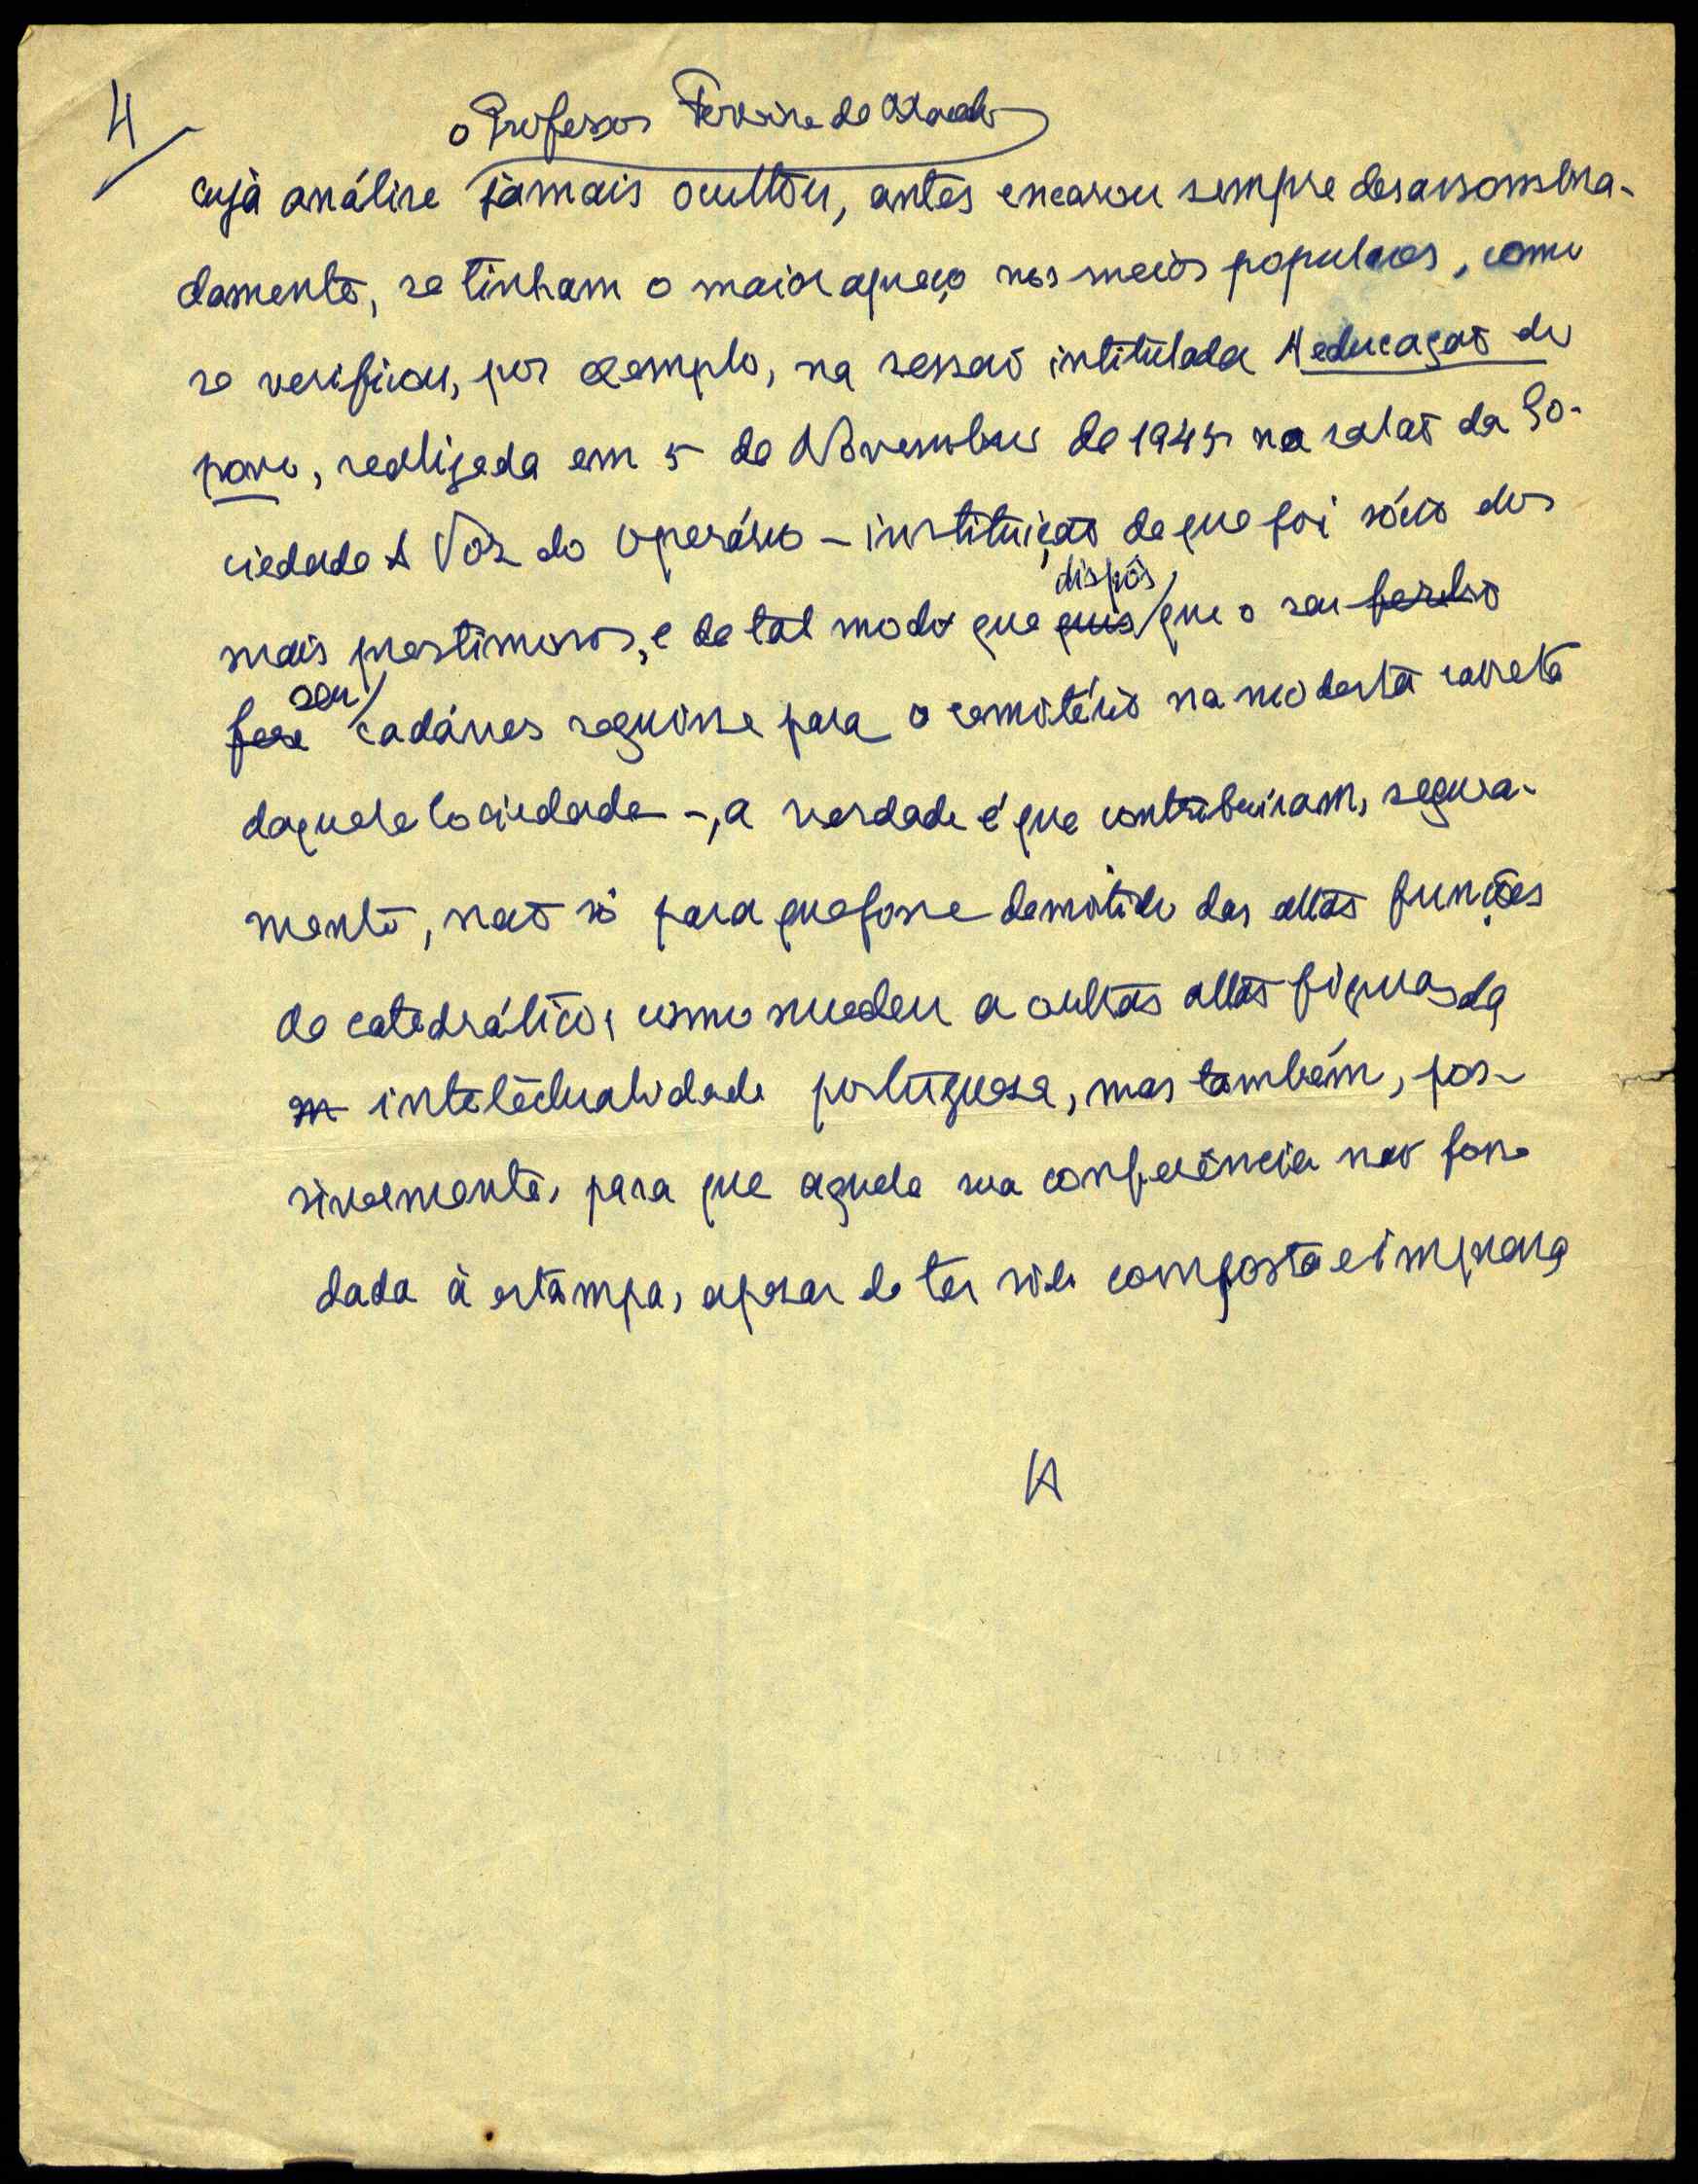 4
o Professor Ferreira de Macedo
cuja análise jamais ocultou, antes encarou sempre desassombra-
damente, se tinham o maior apreço nos meios populares, como
se verificou, por exemplo, na sessão intitulada A educação do
povo, realizada em 5 de Novembro de 1945 no salão da So-
ciedade A Voz do Operário – instituição de que foi sócio dos
dispôs
mais prestimosos, e de tal modo que quis que o seu
seu
fosse cadáver seguisse para o cemitério na modesta carreta
daquela Sociedade –, a verdade é que contribuíram, segura-
mente, não só para que fosse demitido das altas funções
de catedrático, como sucedeu a outras altas figuras da
m intelectualidade portuguesa, mas também, pos-
sivelmente, para que aquela sua conferência não fosse
dada à estampa, apesar de ter sido composta e impressa